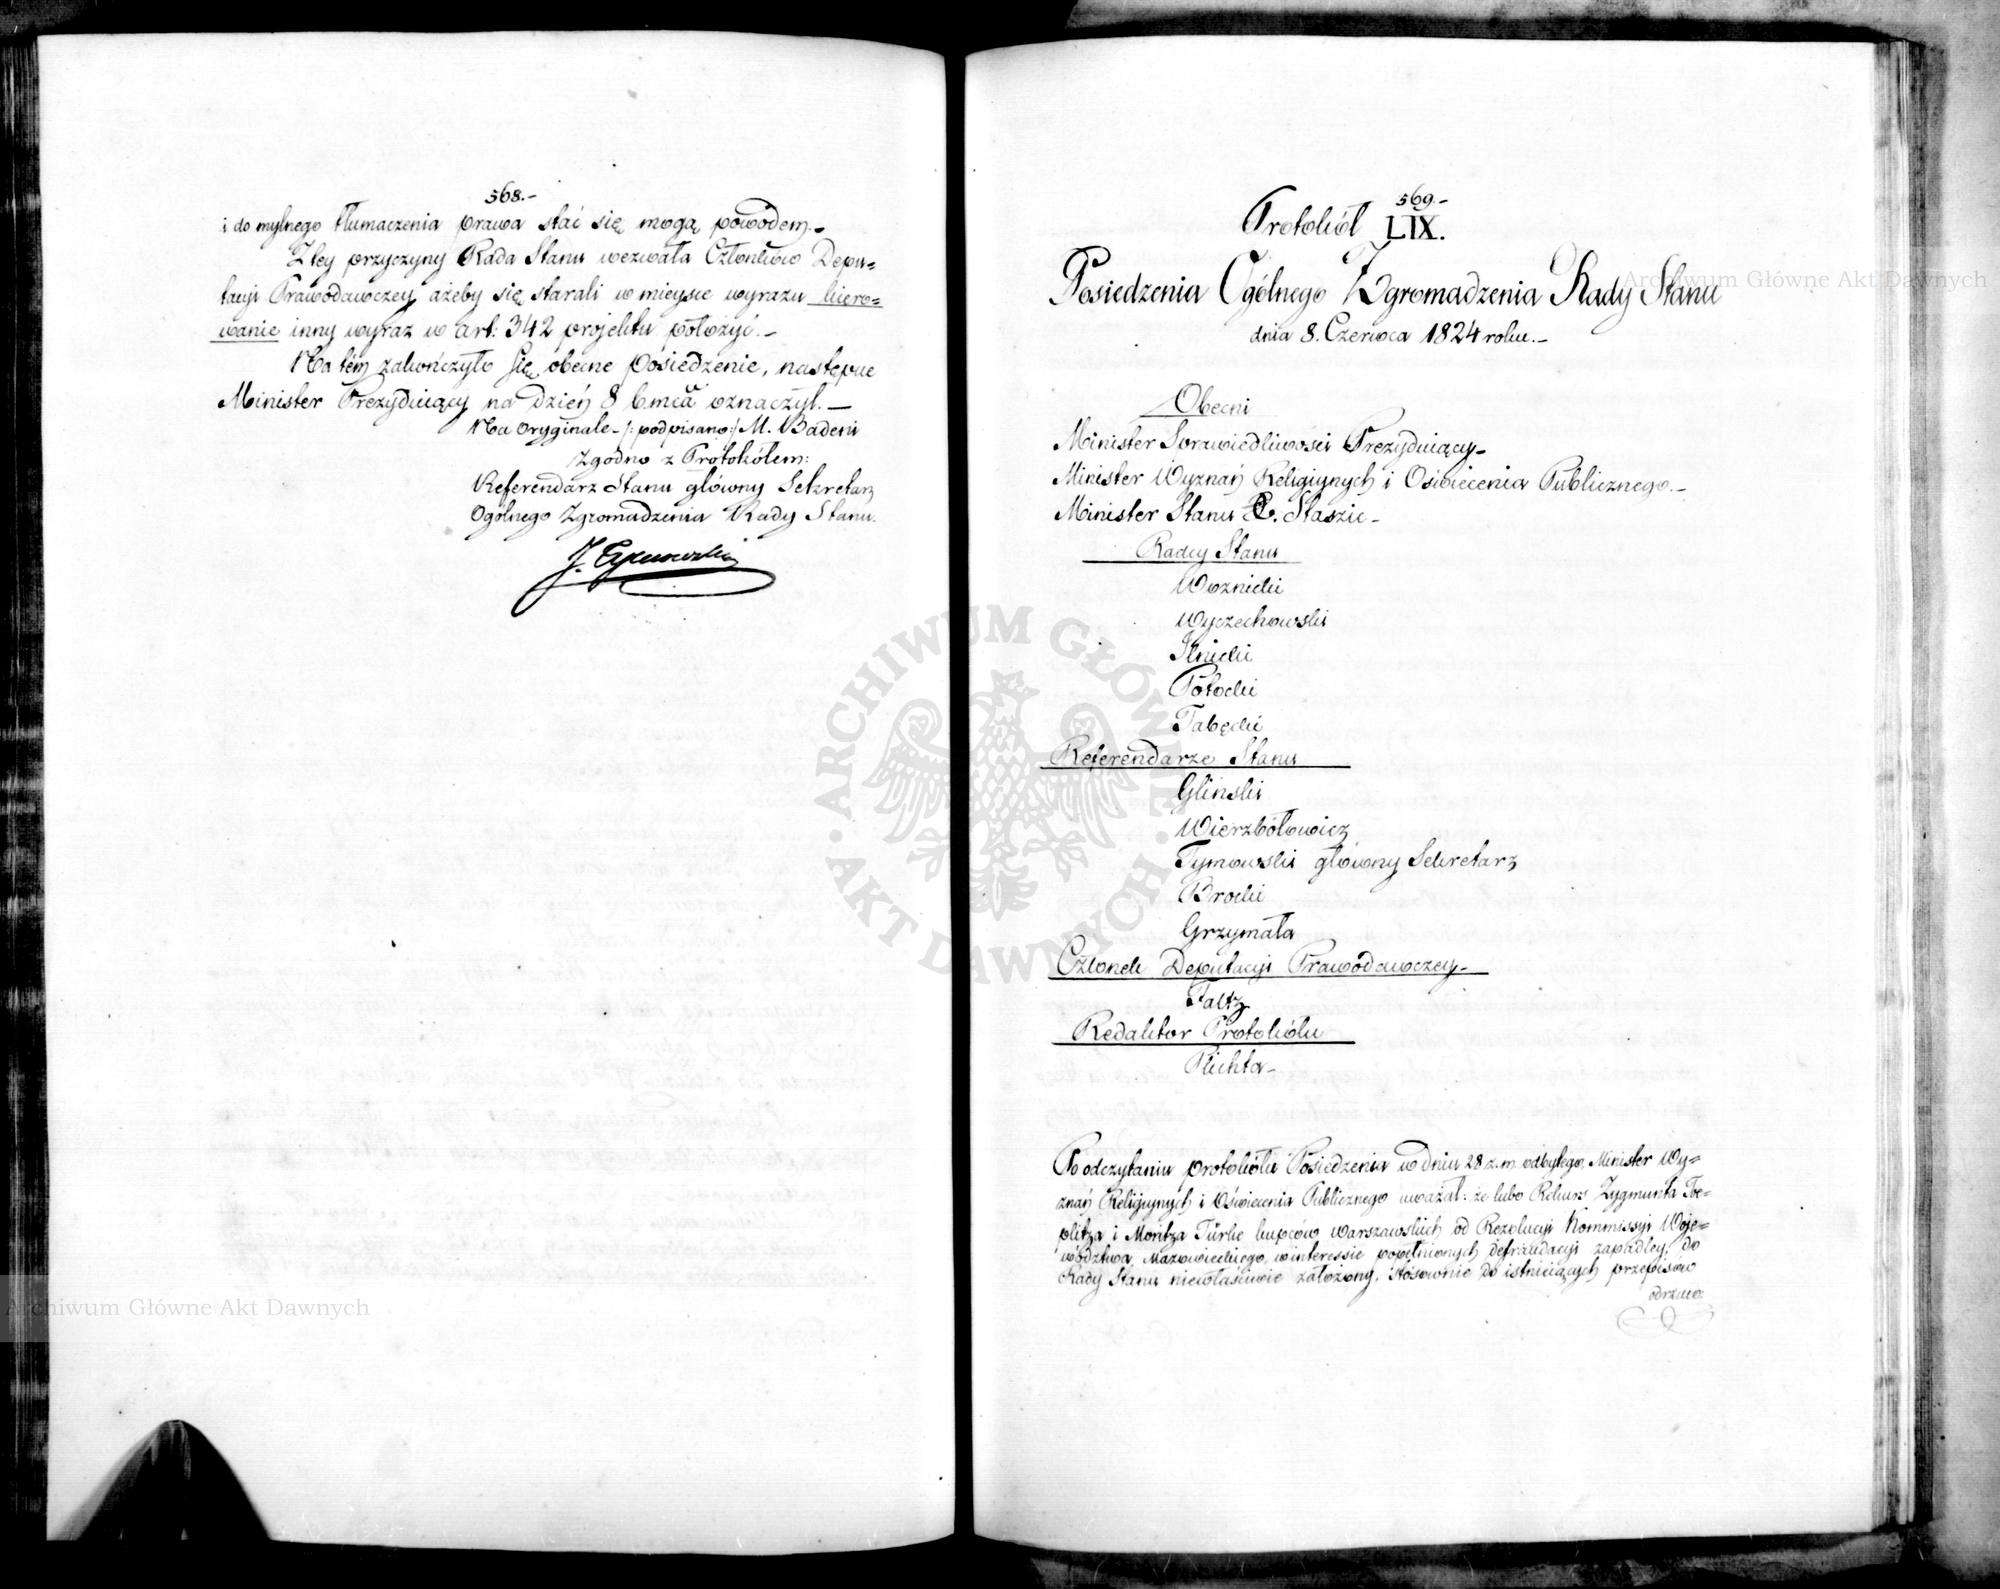 568.-
i do mylnego tłumaczenia prawa stać się mogą powodem.-
Z tey przyczyny Rada Stanu wezwała Członków Depu=
tacyi Prawodawczey ażeby się starali w mieysce wyrazu kiero=
wanie inny wyraz w art: 342 projektu położyć.-
Na tém zakończyło się obecne posiedzenie, następne
Minister Prezyduiący na dzień 8 b.mca oznaczył.-
Na oryginale -/: podpisano:/ M. Badeni
Zgodno z Protokółem:
Referendarz Stanu główny Sekretarz
Ogólnego Zgromadzenia Rady Stanu.
J. Tymowski
569.-
Protokół LIX.
Posiedzenia Ogólnego Zgromadzenia Rady Stanu
dnia 8. Czerwca 1824 roku.-
Obecni
Minister Sprawiedliwości Prezyduiący-
Minister Wyznań Religiynych i Oświecenia Publicznego.-
Minister Stanu Staszic-
Radcy Stanu
Woznicki
Wyczechowski
Ilnicki
Potocki
Tabęcki
Referendarze Stanu
Gliński
Wierzbółowicz
Tymowski główny Sekretarz
Brocki
Grzymała
Członek Deputacyi Prawodawczey-
Faltz
Redaktor Protokółu
Plichta-
Po odczytaniu protokółu Posiedzenia w dniu 28 z.m. odbytego, Minister Wy=
znań Religiynych i Oświecenia Publicznego uważał: że lubo Rekurs Zygmunta Toe=
plitza i Moritza Türke kupców warszawskich od Rezolucyi Kommissyi Woje=
wództwa Mazowieckiego, w interessie popełnionych defraudacyi zapadłey, do
Rady Stanu niewłaściwie założony, stósownie do istnieiących przepisów
odrzuco=
Archiwum Główne Akt Dawnych
Archiwum Główne Akt Dawnych
ARCHIWUM GŁÓWNE · AKT DAWNYCH ·